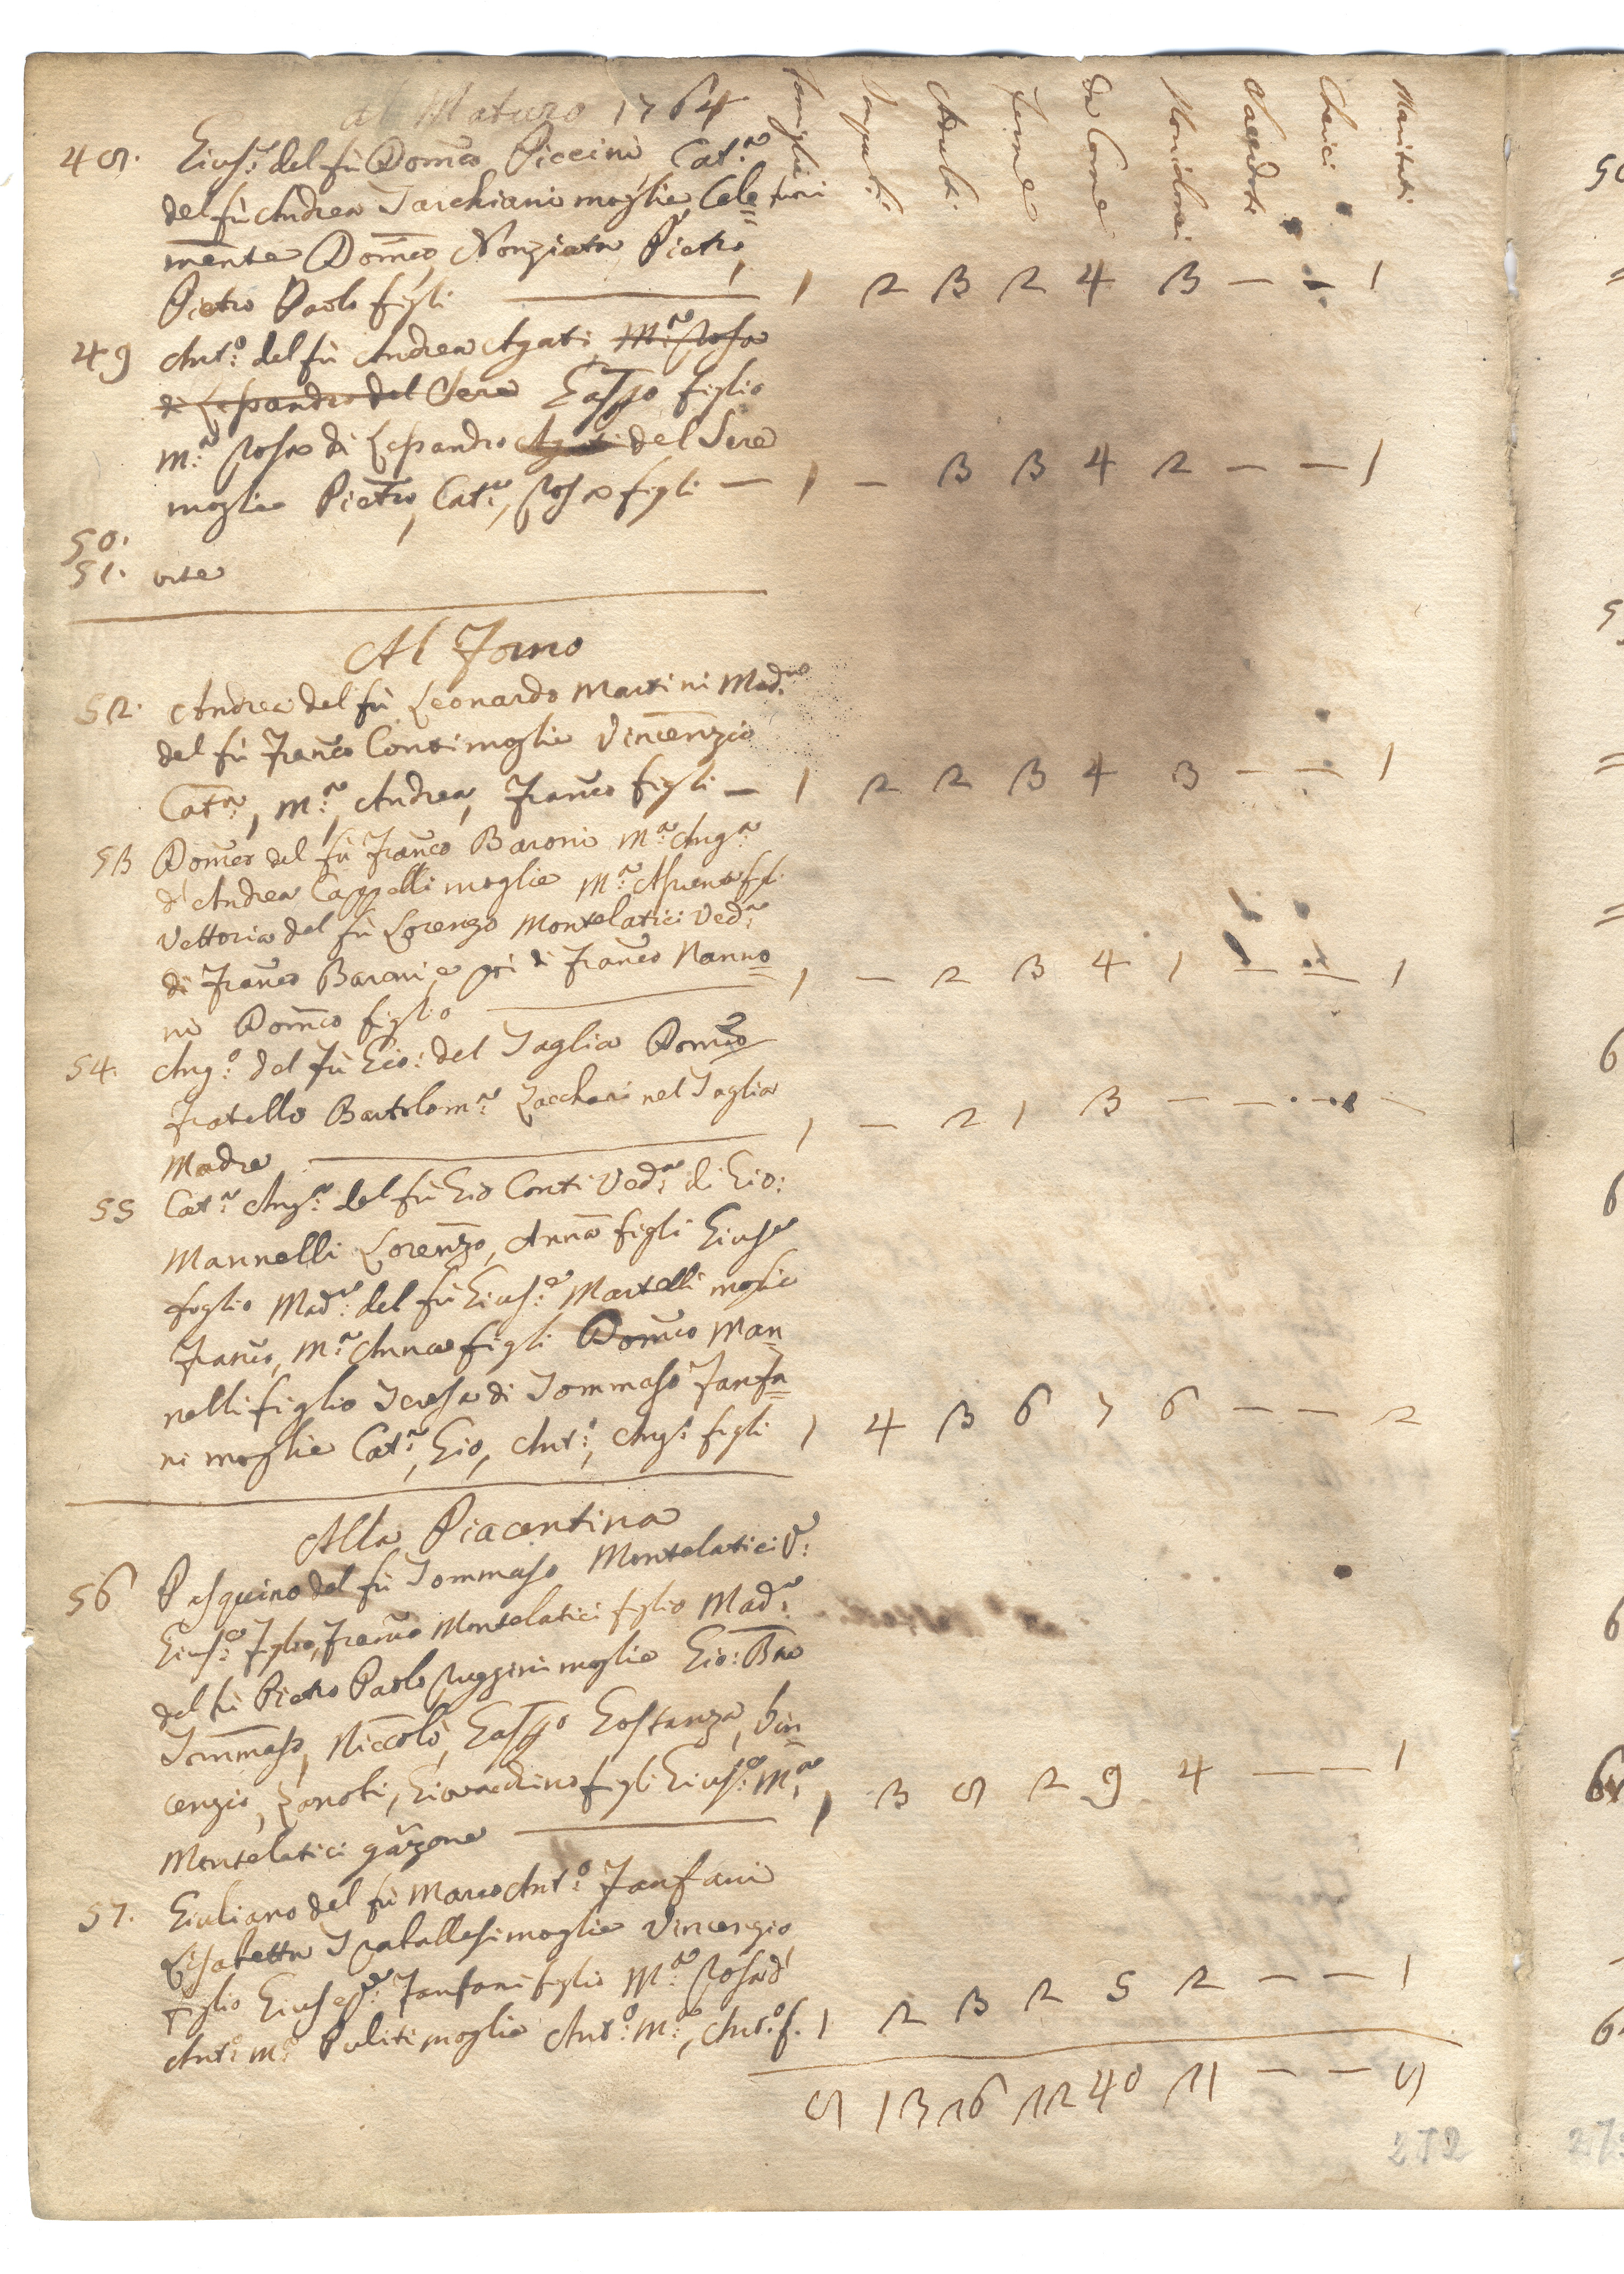 al Maturo 1764
Famiglie
Impuberi
Adulti
Feme
Da Come
Sacerdoti
Cherici
Maritati
48. Gius.e del fù Dom.co Piccini Cat.a
del fù Andrea Tarchiani moglie Cle=
mente Dom.co, Nonziata Pietro,
Pietro Paolo figli — 1 2 3 2 4 3 — — 1
49 Ant.o del fù Andrea Agati, M.a Rosa
di Lessandro del Sere Gasp.o figlio
M.a Rosa di Lessandro Agati del Sere
moglie Pietro, Cat.a, Rosa figli — 1 — 3 3 4 2 — — 1
50.
51. vite
Al Forno
52. Andrea del fù Leonardo Martini Mad.na
del fù Fran.co Conti moglie Vincenzio
Cat.a, M.a, Andrea, Fran.co figli — 1 2 2 3 4 3 — — 1
53 Dom.co del fù Fran.co Baroni M.a Ang.a
d'Andrea Cappelli moglie M.a
Vettoria del fù Lorenzo Montelatici Ved.a
di Fran.co Baroni, e pri di Fran.co Nanno=
ni Dom.co figlio — 1 — 2 3 4 1 — — 1
54. Ang.o del fù Gio: del Taglia Dom.co
fratello Bartolom.a Zaccheri nel Taglia
Madre — 1 — 2 1 3 — — — —
55 Cat.a Ang.a del fù Gio Conti Ved.a di Gio:
Mannelli Lorenzo, Anna figli Gius.e
foglio Mad.a del fù Gius.e Martelli moglie
Fran.co, M.a Anna figli Dom.co Man=
nelli figlio Teresa di Tommaso Fanfa=
ni moglie Cat.a, Gio, Ant.o, Ang.o figli 1 4 3 6 7 6 — — 2
Alla Piacentina
56 Pasquino del fù Tommaso Montelatici V:
Gius.e figlio, Fran.co Montelatici figlio Mad.a
del fù Pietro Paolo Ruggini moglie Gio: B.a
Tommaso, Niccolò, Gasp.o Gostanza, Vin=
cenzio, Zanobi, Giovacchino figli Gius.e M.a
Montelatici garzone — 1 3 8 2 9 4 — — 1
57. Giuliano del fù Marco Ant.o Fanfani
Lisabetta Traballesi moglie Vincenzio
figlio Giuseppe Fanfani figlio M.a Rosa d'
Ant.o M.a Puliti moglie Ant.o M.a, Ant.o f. 1 2 3 2 5 2 — — 1
8 13 26 22 40 21 — — 8
272